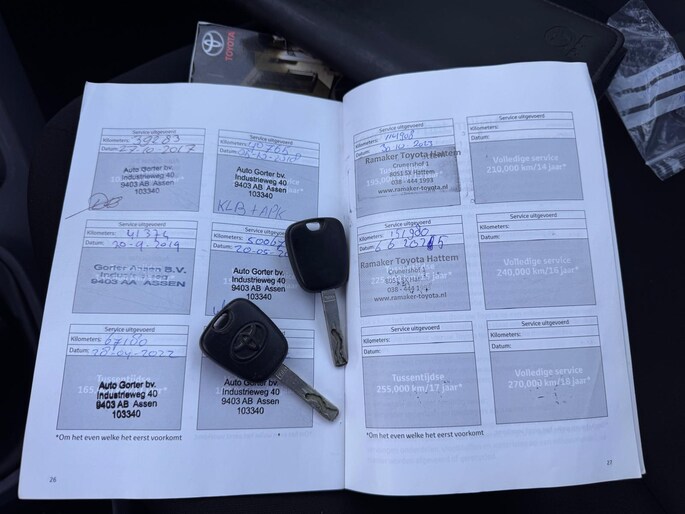 TOYOTA
Service uitgevoerd
Kilometers: 39283
Datum: 27-10-2017
Auto Gorter bv.
Industrieweg 40
9403 AB Assen
103340
Service uitgevoerd
Auto Gorter bv.
Industrieweg 40
9403 AB Assen
103340
KLB + APK
Kilometers: 41374
Datum: 20-9-2019
Gorter Assen B.V.
Industrieweg
9403 AA ASSEN
Auto Gorter bv.
Industrieweg 40
9403 AB Assen
103340
Service uitgevoerd
Kilometers: 67100
Datum: 28-04-2022
Tussentijdse
Auto Gorter bv.
Industrieweg 40
9403 AB Assen
103340
Auto Gorter bv.
Industrieweg 40
9403 AB Assen
103340
*Om het even welke het eerst voorkomt
26
Service uitgevoerd
Kilometers: 114908
Datum: 30.10.2023
Ramaker Toyota Hattem
8051 SJ Hattem
038 - 444 1993
www.ramaker-toyota.nl
Service uitgevoerd
Kilometers:
Datum:
Volledige service
210,000 km/14 jaar*
Service uitgevoerd
Kilometers:
Datum:
Ramaker Toyota Hattem
www.ramaker-toyota.nl
Service uitgevoerd
Kilometers:
Datum:
Volledige service
240,000 km/16 jaar*
Service uitgevoerd
Kilometers:
Datum:
Tussentijdse
255,000 km/17 jaar*
Service uitgevoerd
Kilometers:
Datum:
Volledige service
270,000 km/18 jaar*
*Om het even welke het eerst voorkomt
27